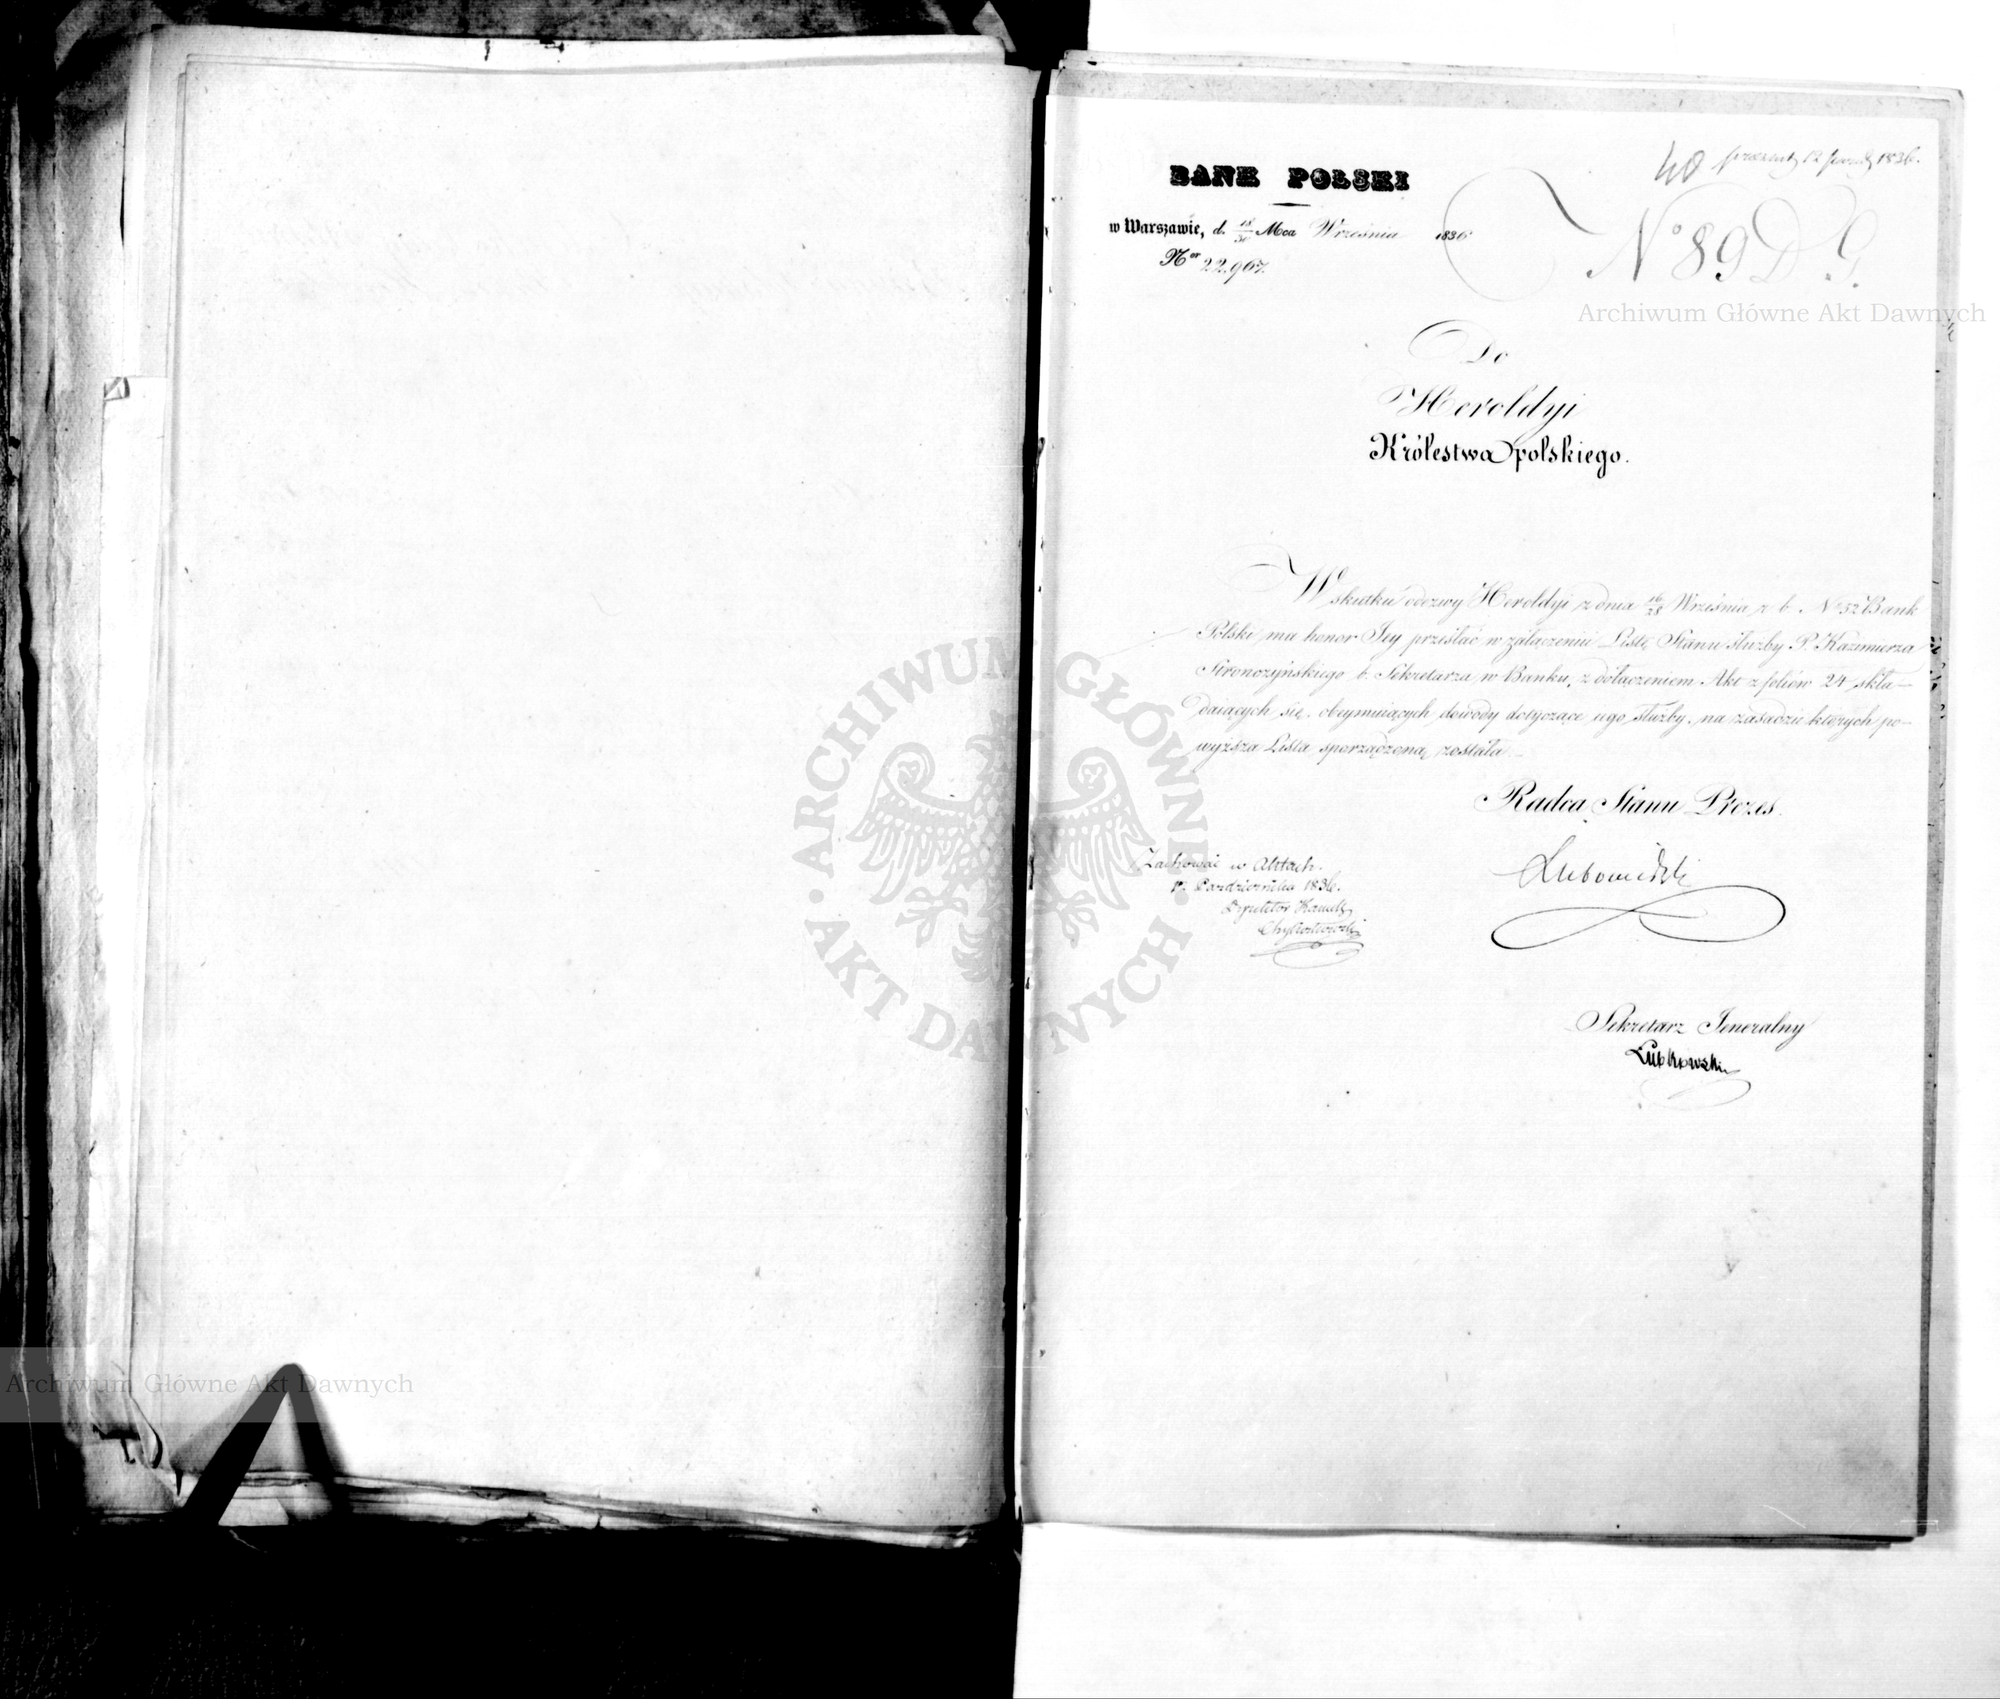 40 12 1836.
BANK POLSKI
w Warszawie, d. 18/30 Mca Września 1836
Nor 22,967.
No 89 D. G.
Archiwum Główne Akt Dawnych
Do
Heroldyi
Królestwa polskiego.
W skutku odezwy Heroldyi z dnia 16/28 Września r. b. No 52 Bank
Polski ma honor Jey przesłać w załączeniu Listę Stanu służby P. Kazimierza
Stronczyńskiego b. Sekretarza w Banku, z dołączeniem Akt z foliów 24 skła-
daiących się, obeymuiących dowody dotyczące iego służby, na zasadzie których po-
wyższa Lista sporządzoną została.
Radca Stanu Prezes.
Zachować w Aktach.
Października 1836.
Lubowidzki
Sekretarz Jeneralny
Lubkowski
ARCHIWUM GŁÓWNE AKT DAWNYCH
Archiwum Główne Akt Dawnych